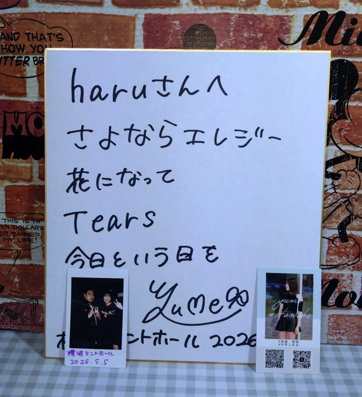 AND THAT'S
HOW YOU
BUTTER BR
THIS IS
haruさんへ
さよならエレジー
花になって
Tears
今日という日を
Yume
ミントホール 2026
横浜ミントホール
2026.5.5